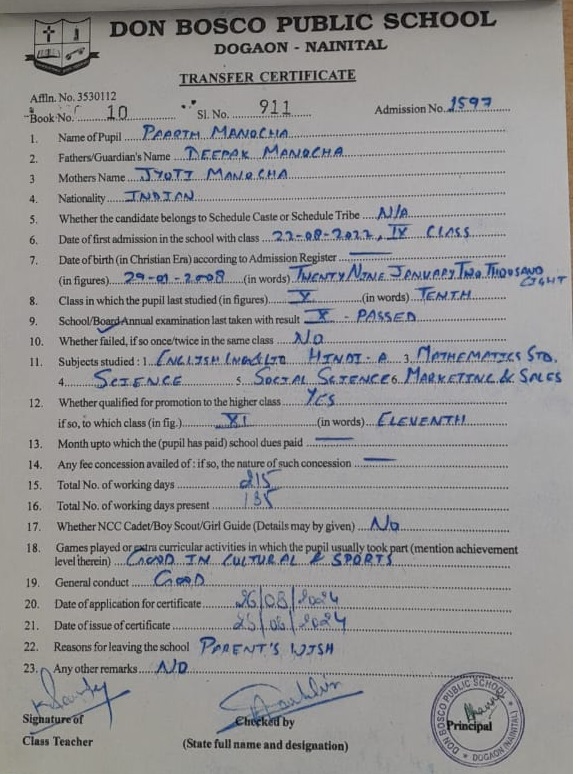 DON BOSCO PUBLIC SCHOOL
DOGAON - NAINITAL
TRANSFER CERTIFICATE
Affln. No. 3530112
Book No. 10 Sl. No. 911 Admission No. 1597
1. Name of Pupil PAARTH MANOCHA
2. Fathers/Guardian's Name DEEPAK MANOCHA
3 Mothers Name JYOTI MANOCHA
4. Nationality INDIAN
5. Whether the candidate belongs to Schedule Caste or Schedule Tribe N/A
6. Date of first admission in the school with class 22-08-2022, IX CLASS
7. Date of birth (in Christian Era) according to Admission Register
(in figures) 29-01-2008 (in words) TWENTY NINE JANUARY TWO THOUSAND EIGHT
8. Class in which the pupil last studied (in figures) X (in words) TENTH
9. School/Board Annual examination last taken with result X - PASSED
10. Whether failed, if so once/twice in the same class NO
11. Subjects studied : 1. ENGLISH LNG & LIT HINDI - A 3. MATHEMATICS STD.
4. SCIENCE 5. SOCIAL SCIENCE 6. MARKETING & SALES
12. Whether qualified for promotion to the higher class YES
if so, to which class (in fig.) XI (in words) ELEVENTH
13. Month upto which the (pupil has paid) school dues paid
14. Any fee concession availed of : if so, the nature of such concession
15. Total No. of working days 215
16. Total No. of working days present 135
17. Whether NCC Cadet/Boy Scout/Girl Guide (Details may by given) No
18. Games played or extra curricular activities in which the pupil usually took part (mention achievement
level therein) GOOD IN CULTURAL & SPORTS
19. General conduct GOOD
20. Date of application for certificate 26/08/2024
21. Date of issue of certificate /2024
22. Reasons for leaving the school PARENT'S WISH
23. Any other remarks NO
Signature of
Class Teacher
Checked by
(State full name and designation)
Principal
DON BOSCO PUBLIC SCHOOL
DOGAON (NAINITAL)